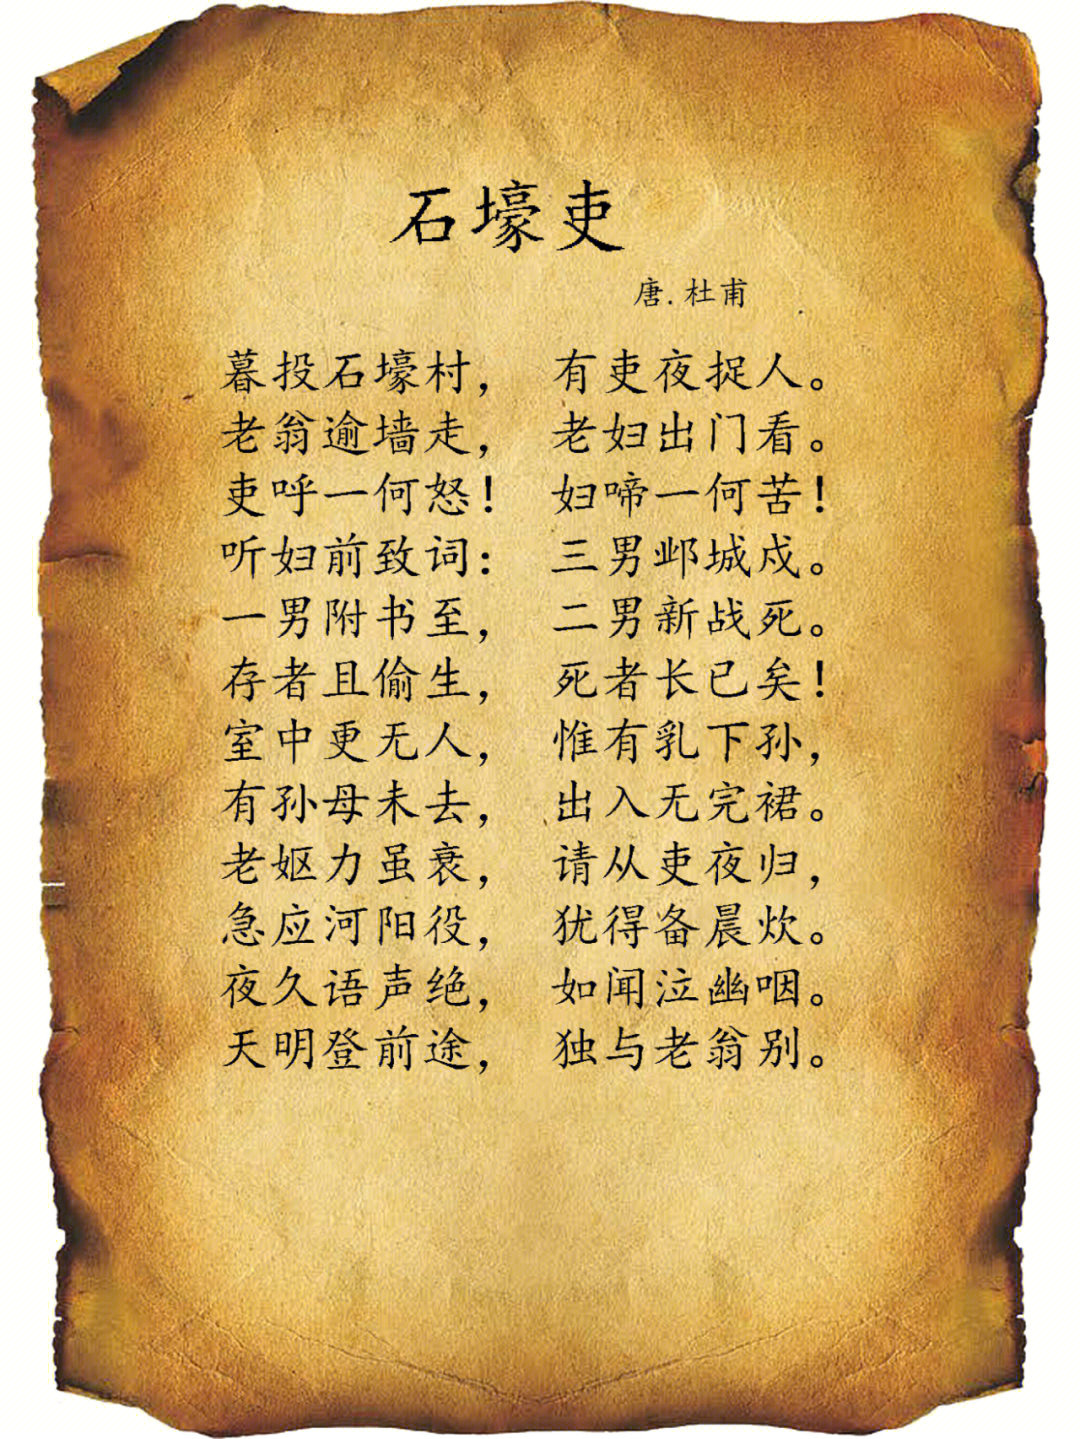 石壕吏
唐.杜甫
暮投石壕村， 有吏夜捉人。
老翁逾墙走， 老妇出门看。
吏呼一何怒！ 妇啼一何苦！
听妇前致词： 三男邺城戍。
一男附书至， 二男新战死。
存者且偷生， 死者长已矣！
室中更无人， 惟有乳下孙，
有孙母未去， 出入无完裙。
老妪力虽衰， 请从吏夜归，
急应河阳役， 犹得备晨炊。
夜久语声绝， 如闻泣幽咽。
天明登前途， 独与老翁别。